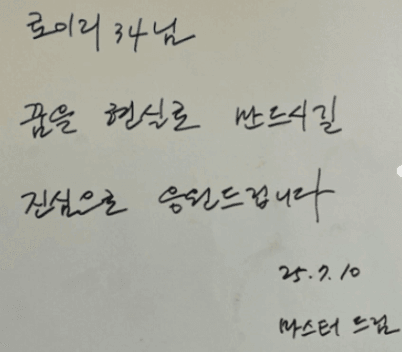 로이리 34님
꿈을 현실로 만드시길
진심으로 응원드립니다
25.7.10
마스터 드림